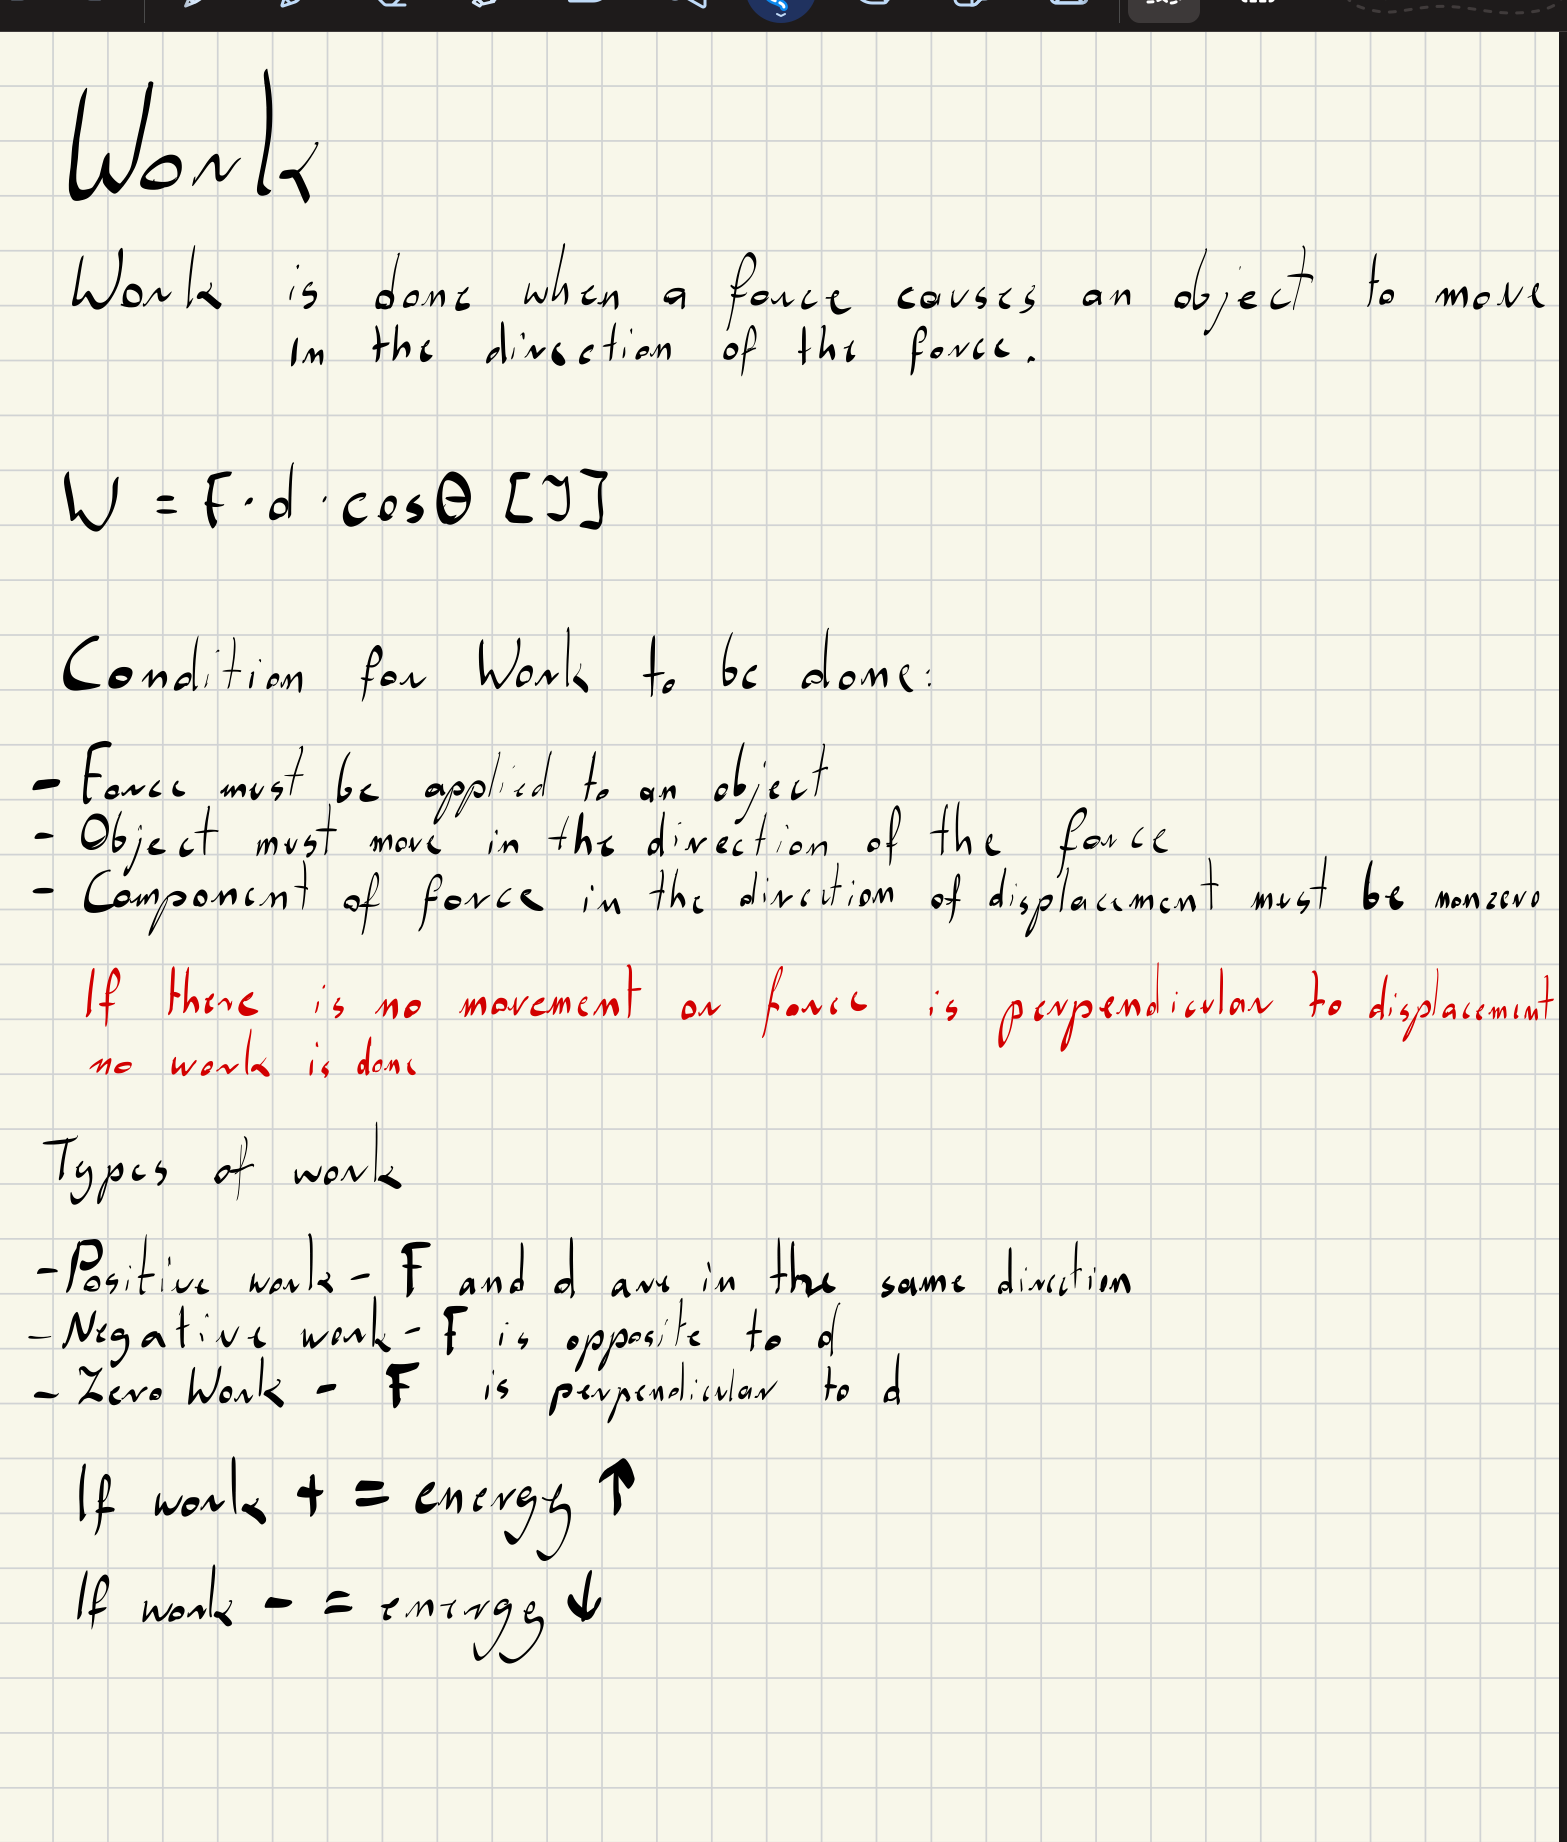 Work
Work is done when a force causes an object to move
in the direction of the force.
W = F · d · cosθ [J]
Condition for Work to be done:
- Force must be applied to an object
- Object must move in the direction of the force
- Component of force in the direction of displacement must be nonzero
If there is no movement or force is perpendicular to displacement
no work is done
Types of work
- Positive work - F and d are in the same direction
- Negative work - F is opposite to d
- Zero Work - F is perpendicular to d
If work + = energy ↑
If work - = energy ↓